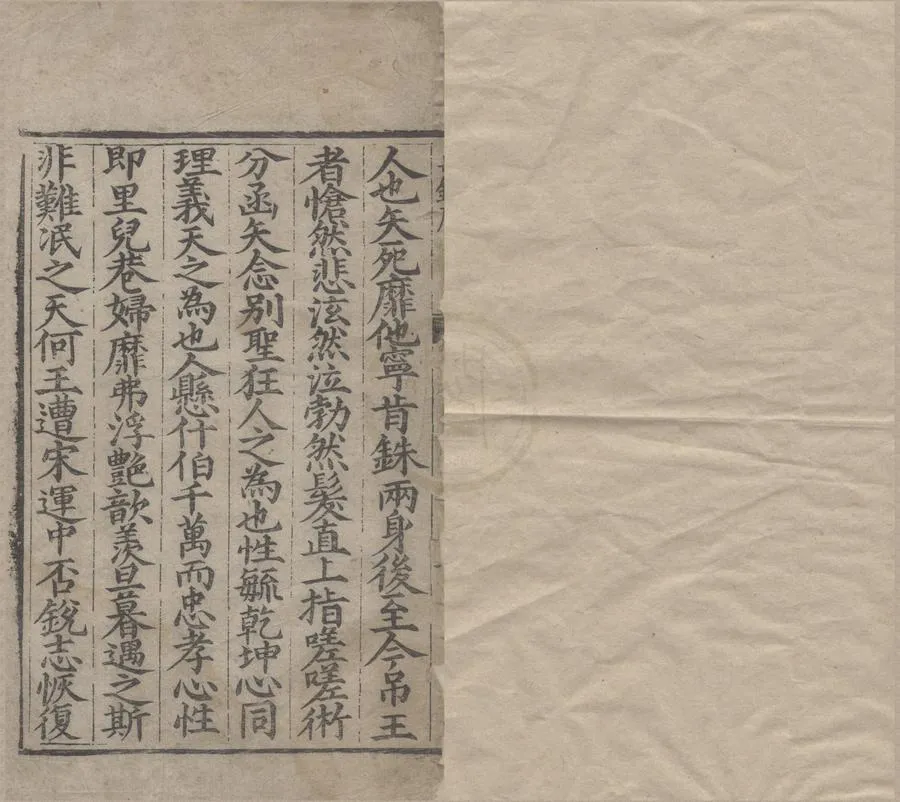 人也矢死靡他寧肯銖兩身後至今吊王
者愴然悲泫然泣勃然髮直上指嗟嗟術
分函矢念别聖狂人之為也性毓乾坤心同
理義天之為也人懸什伯千萬而忠孝心性
即里兒巷婦靡弗浮艷歆羨旦暮遇之斯
非難泯之天何王遭宋運中否銳志恢復